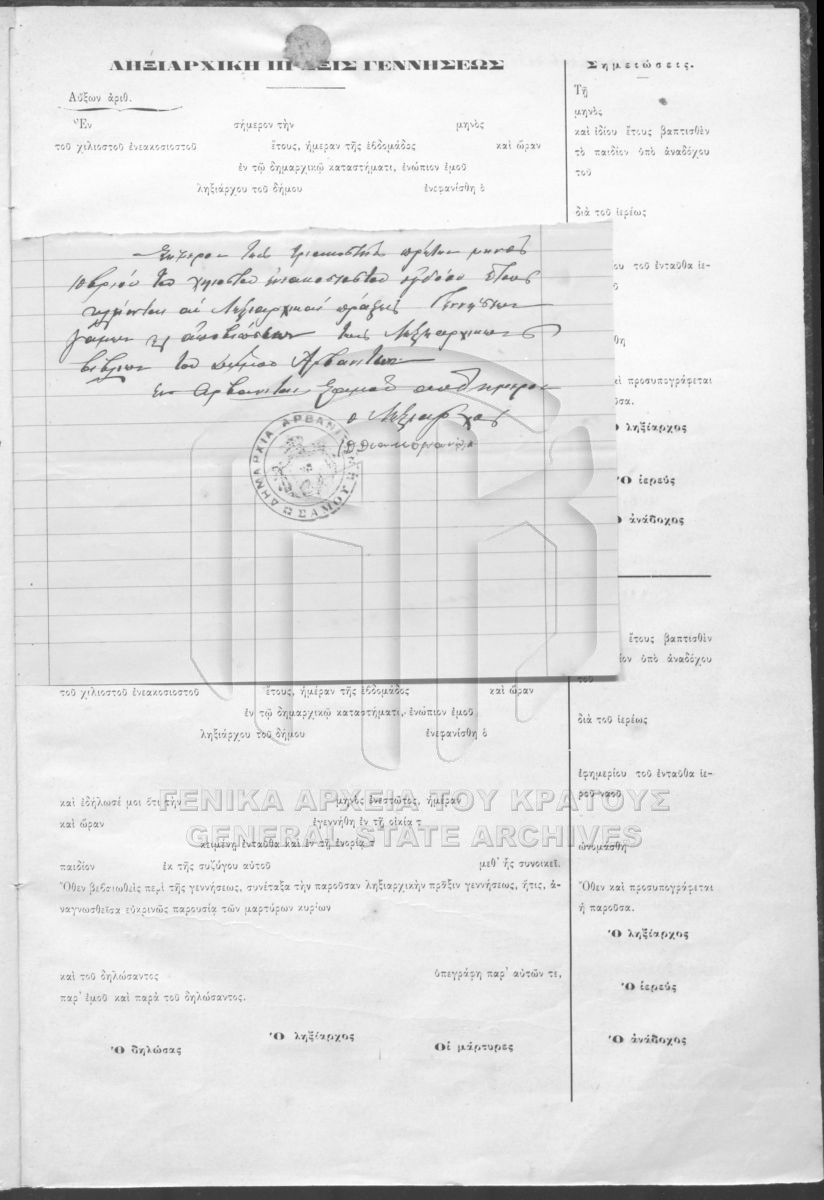 ΛΗΞΙΑΡΧΙΚΗ ΠΡΑΞΙΣ ΓΕΝΝΗΣΕΩΣ
Αὔξων ἀριθ.
Ἐν σήμερον τὴν μηνὸς
τοῦ χιλιοστοῦ ἐνεακοσιοστοῦ ἔτους, ἡμέραν τῆς ἑβδομάδος καὶ ὥραν
ἐν τῷ δημαρχικῷ καταστήματι, ἐνώπιον ἐμοῦ
ληξιάρχου τοῦ δήμου ἐνεφανίσθη ὁ
Σήμερον τὴν τριακοστὴν πρώτην μηνὸς
10βρίου τοῦ χιλιοστοῦ ἐνιακοσιοστοῦ ὀγδόου ἔτους
αἱ Ληξιαρχικαὶ πράξεις Γεννήσεων
γάμων καὶ ἀποβιώσεων τῶν Ληξιαρχικῶν
βιβλίων τοῦ Δήμου Ἀρβανιτῶν
Ἐν Ἀρβανίταις Σάμου αὐθημερὸν
ὁ Ληξίαρχος
ΔΗΜΑΡΧΙΑ ΑΡΒΑΝΙΤΩΝ
ΣΑΜΟΥ
τοῦ χιλιοστοῦ ἐνεακοσιοστοῦ ἔτους, ἡμέραν τῆς ἑβδομάδος καὶ ὥραν
ἐν τῷ δημαρχικῷ καταστήματι, ἐνώπιον ἐμοῦ
ληξιάρχου τοῦ δήμου ἐνεφανίσθη ὁ
καὶ ἐδήλωσέ μοι ὅτι τὴν μηνὸς ἐνεστῶτος, ἡμέραν
καὶ ὥραν ἐγεννήθη ἐν τῇ οἰκίᾳ τ
κειμένῃ ἐνταῦθα καὶ ἐν τῇ ἐνορίᾳ τ
παιδίον ἐκ τῆς συζύγου αὐτοῦ μεθ' ἧς συνοικεῖ.
Ὅθεν βεβαιωθεὶς περὶ τῆς γεννήσεως, συνέταξα τὴν παροῦσαν ληξιαρχικὴν πρᾶξιν γεννήσεως, ἥτις, ἀ-
ναγνωσθεῖσα εὐκρινῶς παρουσίᾳ τῶν μαρτύρων κυρίων
καὶ τοῦ δηλώσαντος ὑπεγράφη παρ' αὐτῶν τε,
παρ' ἐμοῦ καὶ παρὰ τοῦ δηλώσαντος.
Ὁ δηλώσας Ὁ ληξίαρχος Οἱ μάρτυρες
Σημειώσεις.
Τῇ
μηνὸς
καὶ ἰδίου ἔτους βαπτισθὲν
τὸ παιδίον ὑπὸ ἀναδόχου
τοῦ
διὰ τοῦ ἱερέως
τοῦ ἐνταῦθα ἱε-
προσυπογράφεται
ληξίαρχος
Ὁ ἱερεὺς
Ὁ ἀνάδοχος
ἔτους βαπτισθὲν
ὑπὸ ἀναδόχου
τοῦ
διὰ τοῦ ἱερέως
ἐφημερίου τοῦ ἐνταῦθα ἱε-
ροῦ ναοῦ
ὠνομάσθη
Ὅθεν καὶ προσυπογράφεται
ἡ παροῦσα.
Ὁ ληξίαρχος
Ὁ ἱερεὺς
Ὁ ἀνάδοχος
ΓΕΝΙΚΑ ΑΡΧΕΙΑ ΤΟΥ ΚΡΑΤΟΥΣ
GENERAL STATE ARCHIVES